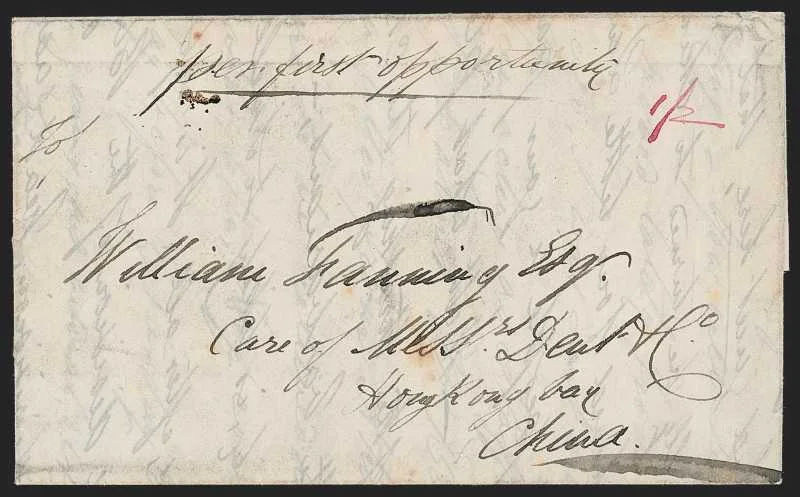 per first opportunity
1/2
To
William Fanning Esq.
Care of Messrs. Dent & Co
Hong Kong bay
China.